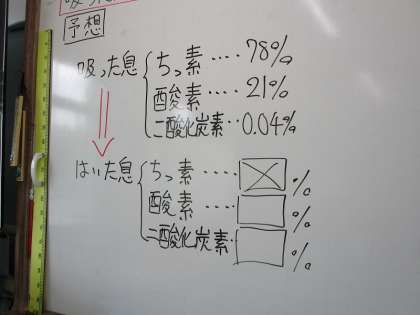 予想
吸った息 ちっ素 ････ 78%
酸素 ････ 21%
二酸化炭素 ･･ 0.04%
はいた息 ちっ素 ････ %
酸素 ････ %
二酸化炭素 ･･ %